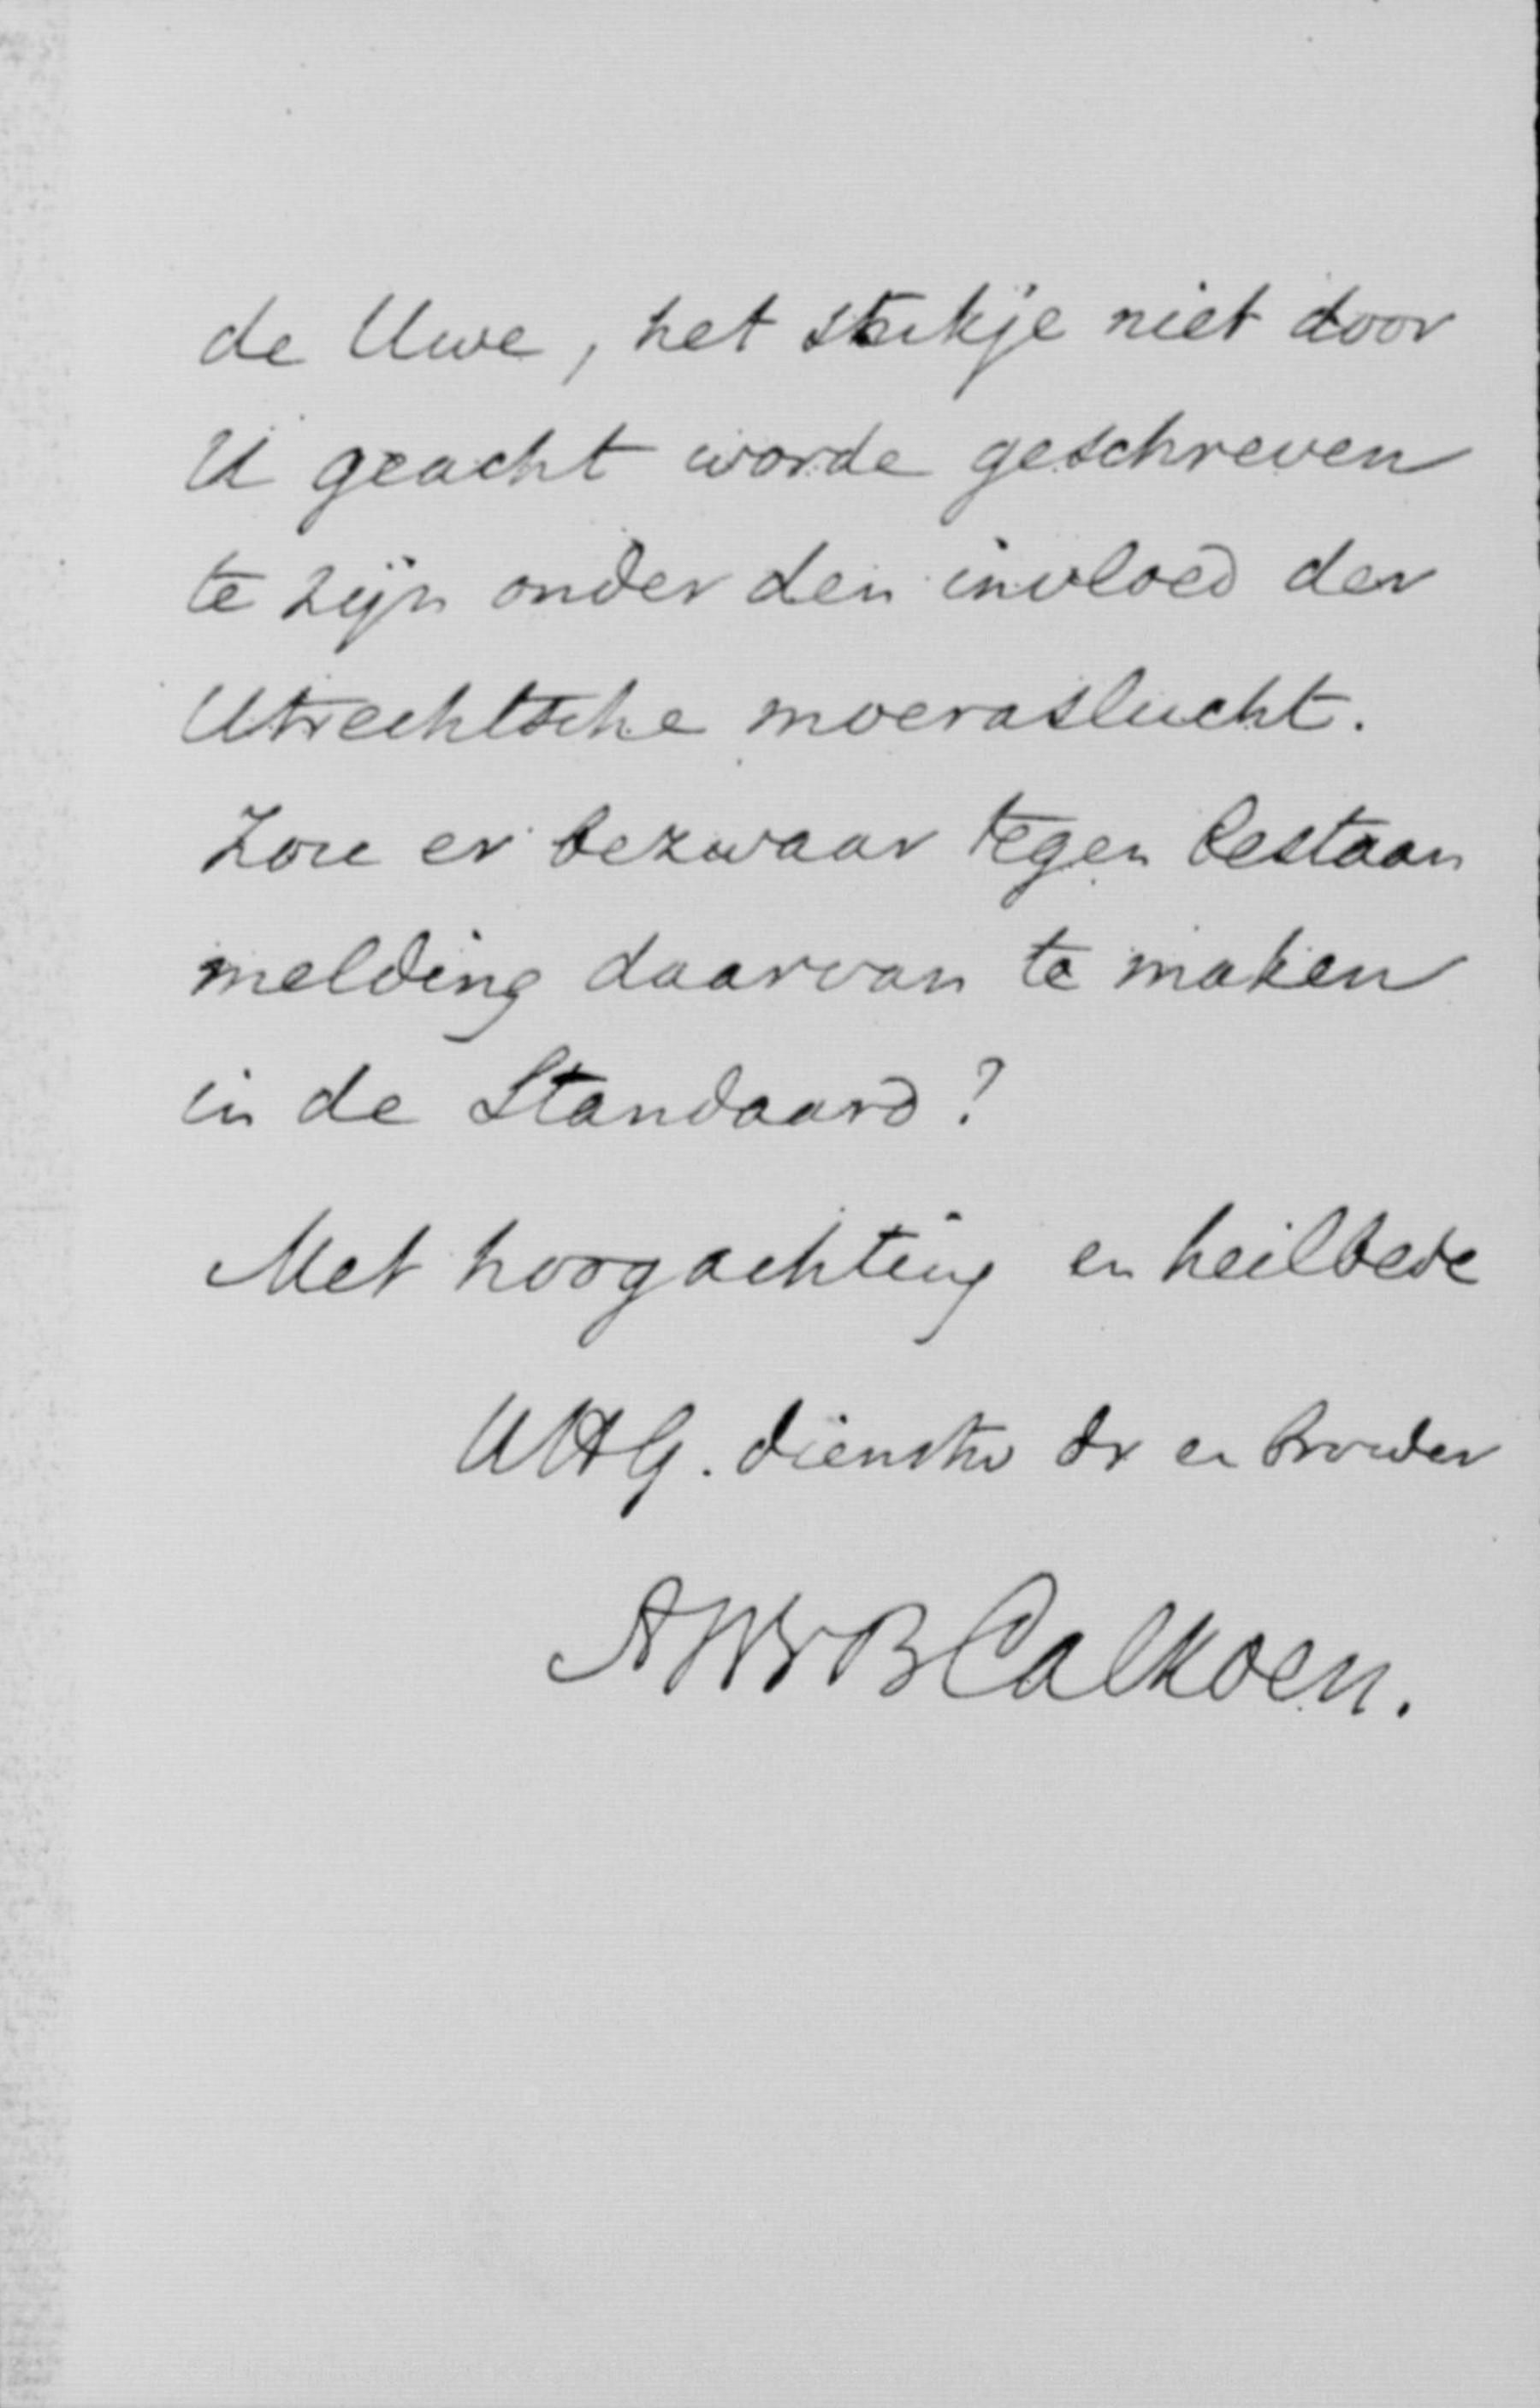 de Uwe, het stukje niet door
U geacht worde geschreven
te zijn onder den invloed der
Utrechtsche moeraslucht.
Zou er bezwaar tegen bestaan
melding daarvan te maken
in de Standaard?
Met hoogachting en heilbede
UHG. dienstw dr en broeder
Calkoen.